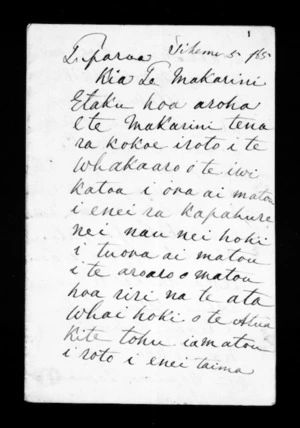 1
Tiparoa Tihema 5 1865
Kia Te Makarini
Etaku hoa aroha
Ete Makarini tena
ra kokoe iroto i te
whakaaro o te iwi
katoa i ora ai matou
i enei ra kapahure
nei nau nei hoki
i tuora ai matou
i te aroaro o matou
hoa riri na te ata
whai hoki o te Atua
kite tohu iamatou
i roto i enei taima